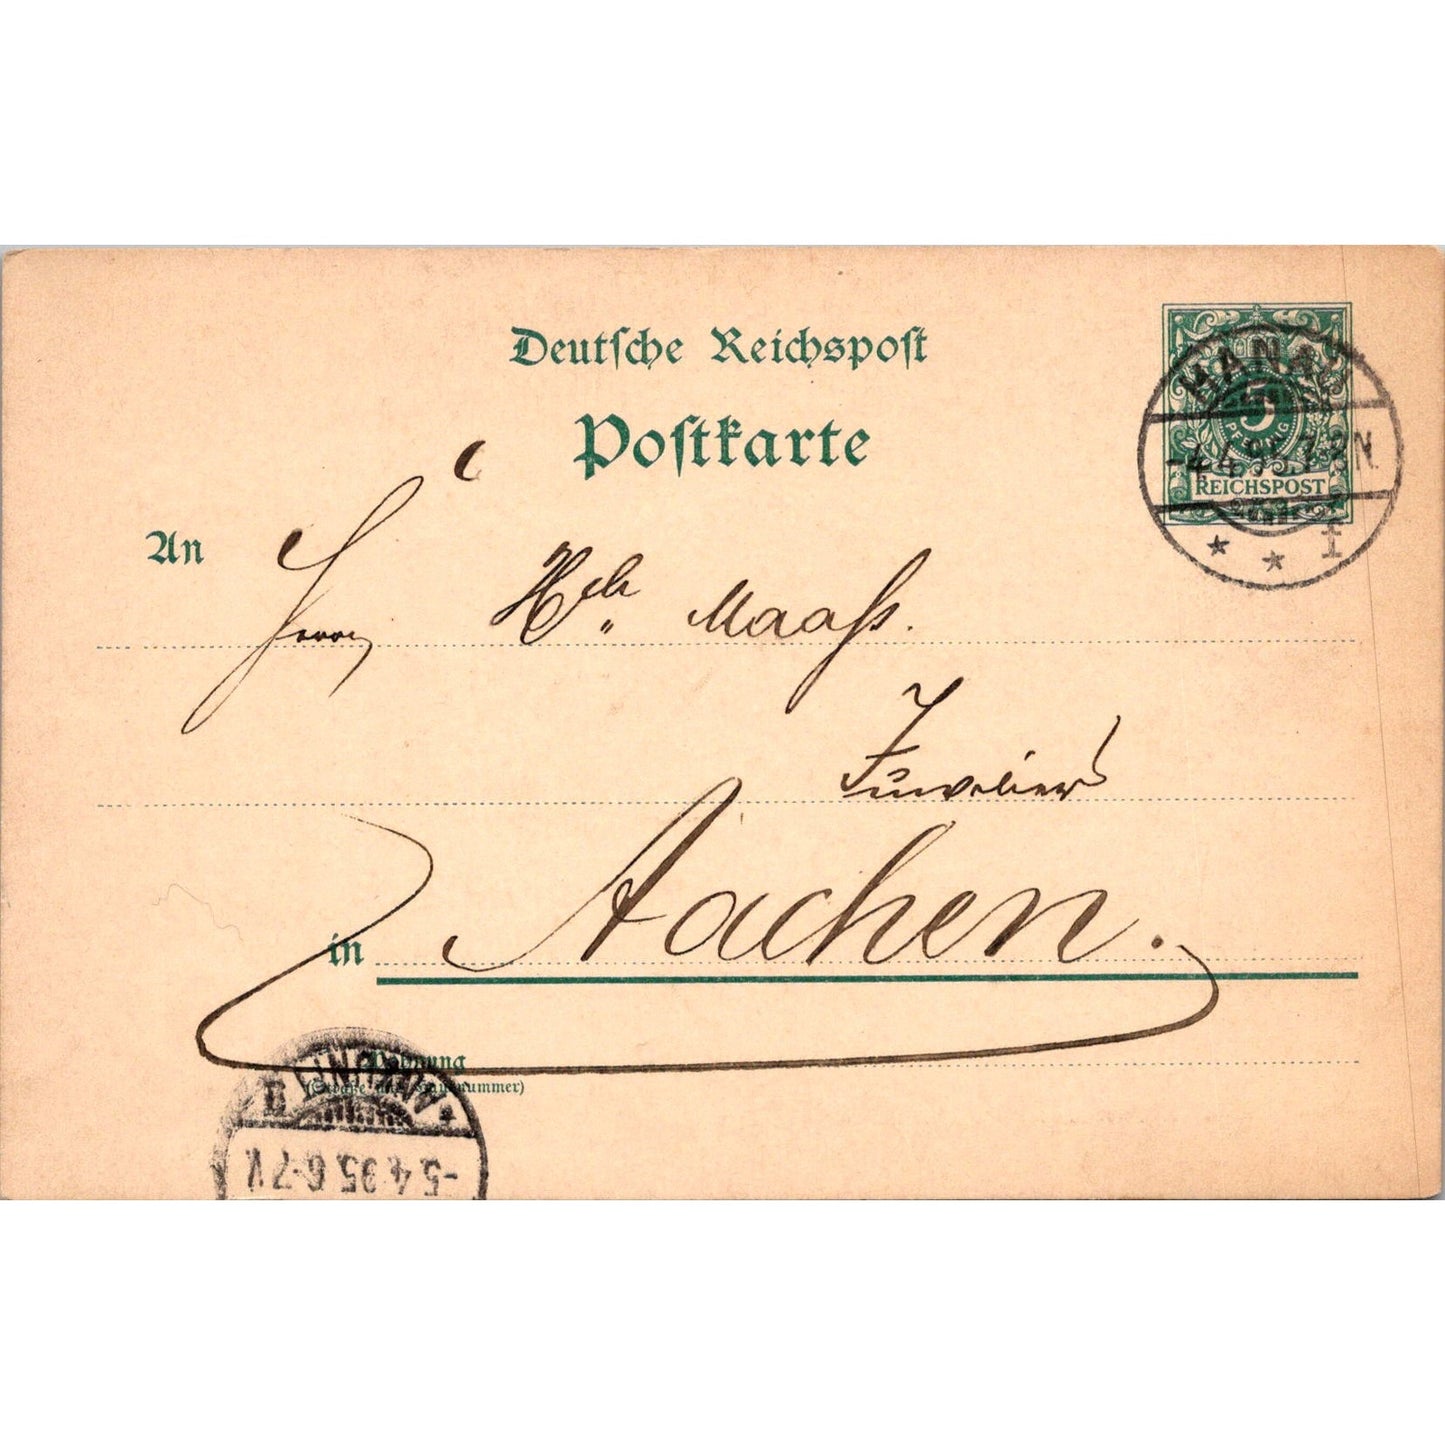 Deutsche Reichspost
Postkarte
HANAU
5
PFENNIG
-4.4.95.7-8N.
REICHSPOST
* * I
An
Herrn Hch. Maaß.
Juwelier
in Aachen.
Wohnung
(Straße und Hausnummer)
ANKUNFT
-5.4.95.6-7V